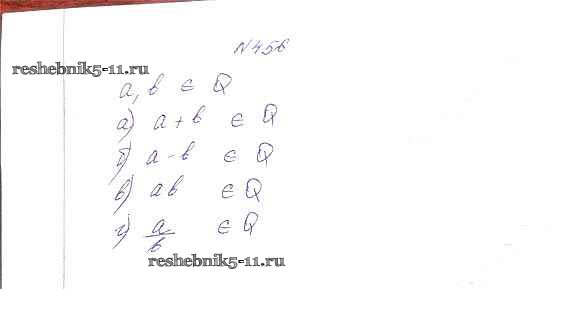 N456
reshebnik5-11.ru
a, b ∈ Q
а) a + b ∈ Q
б) a - b ∈ Q
в) ab ∈ Q
г) a/b ∈ Q
reshebnik5-11.ru